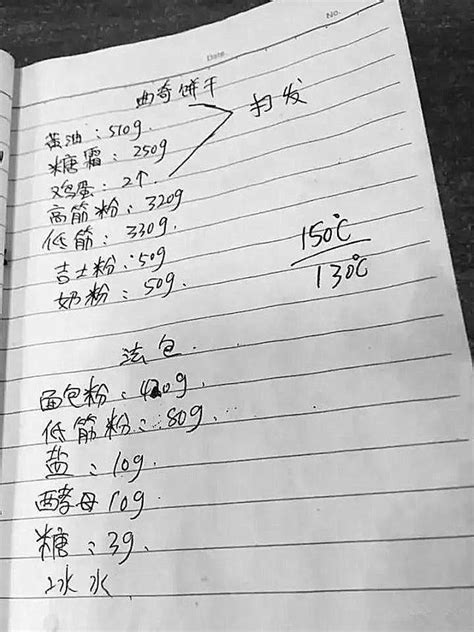 No.
Date.
曲奇饼干
打发
黄油：510g.
糖霜：250g
鸡蛋：2个
高筋粉：320g
低筋：330g.
吉士粉：50g
奶粉：50g.
150℃
130℃
法包.
面包粉：420g.
低筋粉：80g
盐：10g.
酵母10g
糖：3g.
冰水